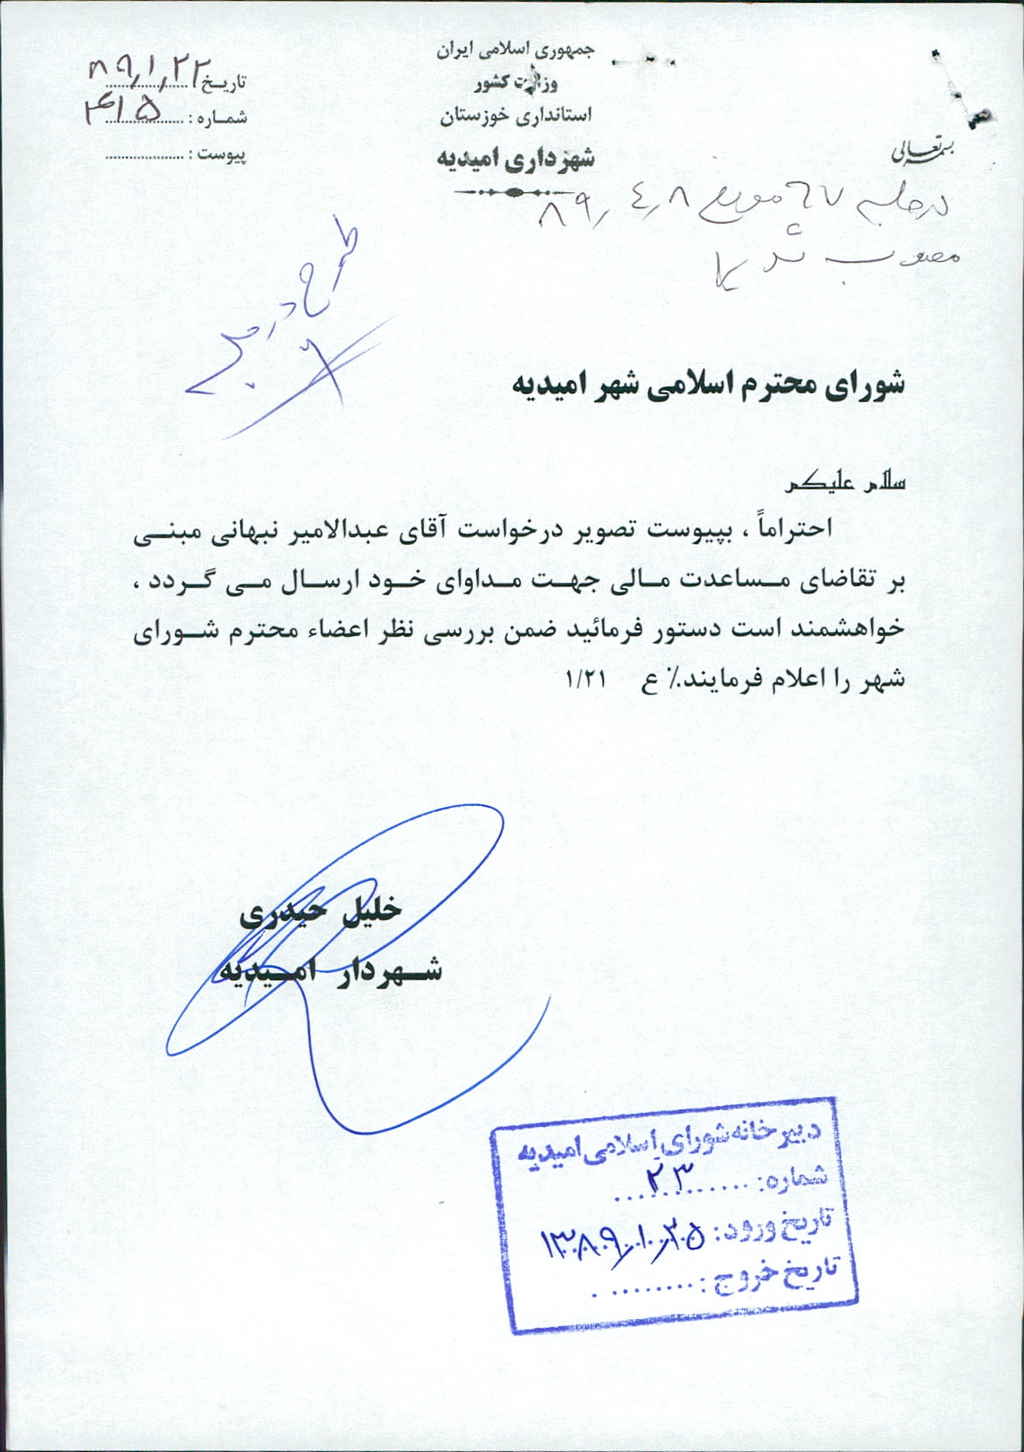 بسمه تعالی
جمهوری اسلامی ایران
وزارت کشور
استانداری خوزستان
شهرداری امیدیه
تاریخ ۸۹,۱,۲۲
شماره : ۴۱۵
پیوست :
در جلسه ۶۷ مورخ ۸۹,۴,۸
مصوب شد
طرح در جلسه
شورای محترم اسلامی شهر امیدیه
سلام علیکم
احتراماً ، بپیوست تصویر درخواست آقای عبدالامیر نبهانی مبنی
بر تقاضای مساعدت مالی جهت مداوای خود ارسال می گردد ،
خواهشمند است دستور فرمائید ضمن بررسی نظر اعضاء محترم شورای
شهر را اعلام فرمایند٪ ع ۱/۲۱
خلیل حیدری
شهردار امیدیه
دبیرخانه شورای اسلامی امیدیه
شماره: ۲۳
تاریخ ورود: ۱۳۸۹,۱,۲۵
تاریخ خروج :